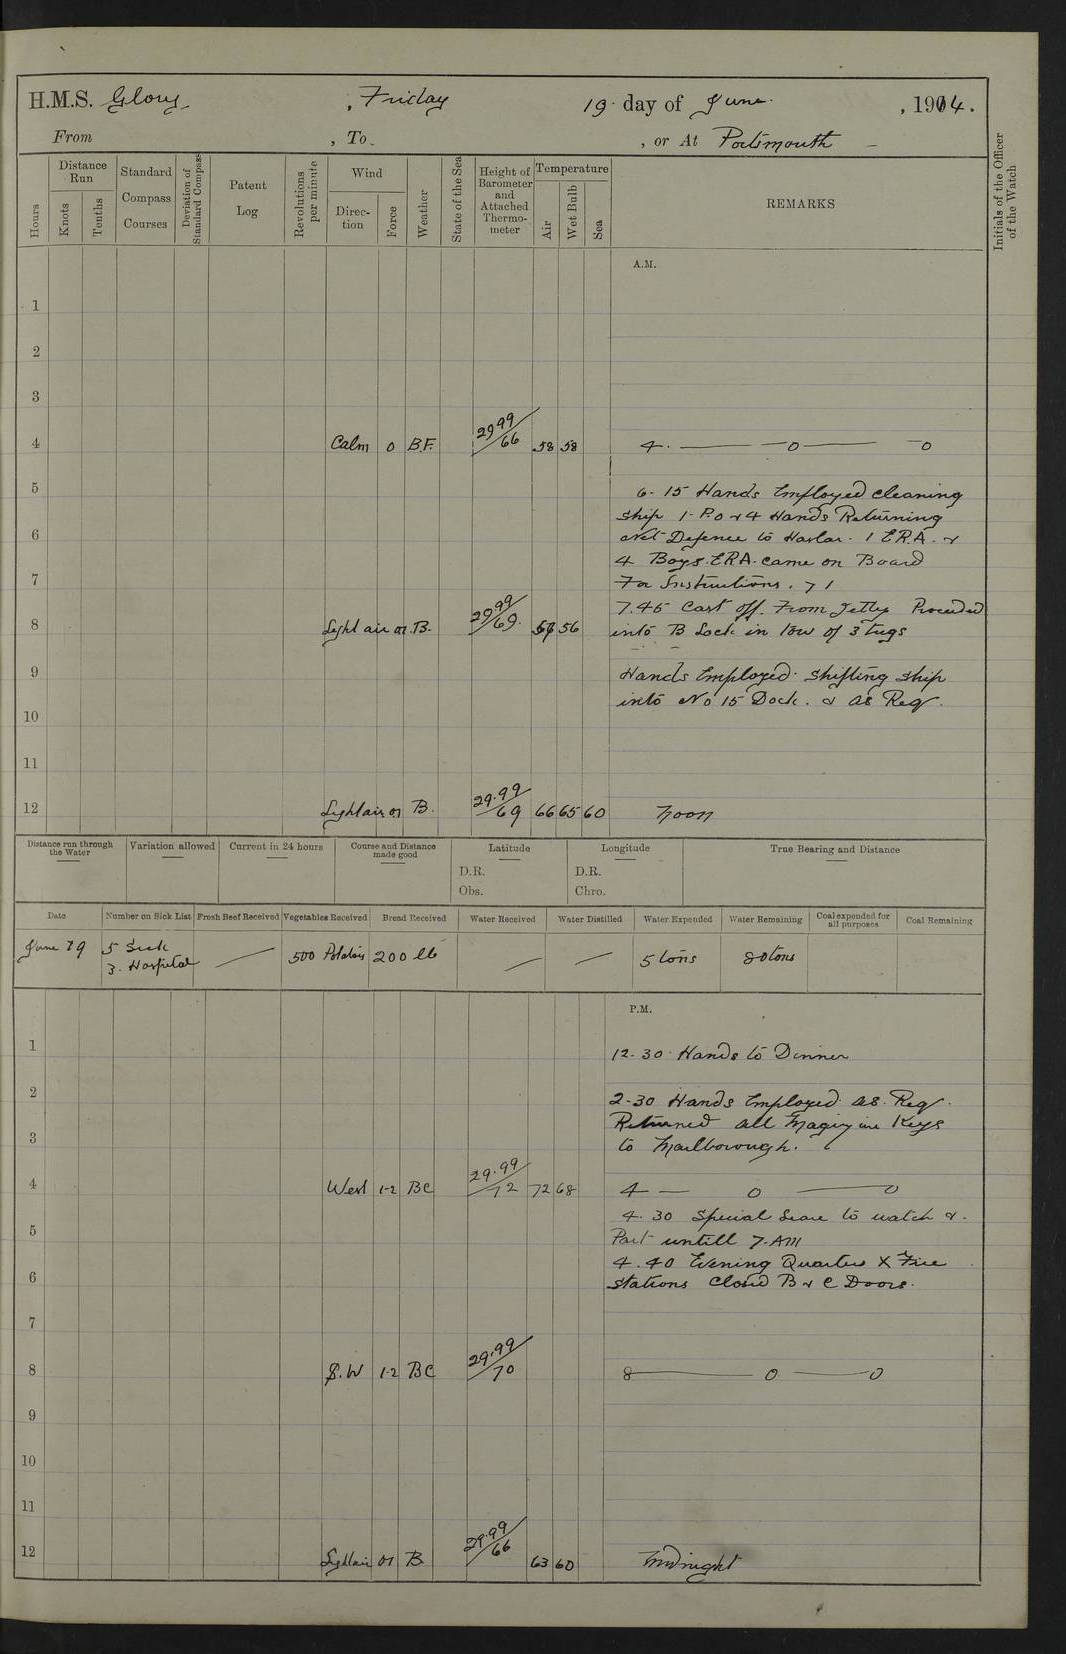 H.M.S. Glory, Friday 19 day of June, 1914.
From , To , or At Portsmouth
Hours
Distance Run
Knots
Tenths
Standard Compass Courses
Deviation of Standard Compass
Patent Log
Revolutions per minute
Wind
Direction
Force
Weather
State of the Sea
Height of Barometer and Attached Thermometer
Temperature
Air
Wet Bulb
Sea
REMARKS
Initials of the Officer of the Watch
A.M.
1
2
3
4 Calm 0 B.F. 29.99/66 58 58 4. — 0 — 0
5 6-15 Hands Employed cleaning
ship 1 P.O & 4 Hands Returning
6 Net Defence to Haslar. 1 ERA. &
4 Boys. ERA. came on Board
7 For Instructions. 71
7.45 Cast off. From Jetty Proceeded
8 Light air 01 B. 29.99/69 56 into B Lock in tow of 3 tugs
9 Hands Employed shifting ship
into No 15 Dock. & as Req.
10
11
12 Light air 01 B. 29.99/69 66 65 60 Noon
Distance run through the Water
Variation allowed
Current in 24 hours
Course and Distance made good
Latitude
D.R.
Obs.
Longitude
D.R.
Chro.
True Bearing and Distance
Date Number on Sick List Fresh Beef Received Vegetables Received Bread Received Water Received Water Distilled Water Expended Water Remaining Coal expended for all purposes Coal Remaining
June 19 5 Sick — 500 Potatoes 200 lb — — 5 tons 80 tons
3. Hospital
P.M.
1 12-30 Hands to Dinner
2 2-30 Hands Employed as Req.
Returned all Magazine Keys
3 to Marlborough.
4 West 1-2 BC 29.99/72 72 68 4 — 0 — 0
4.30 Special leave to watch &
5 Part untill 7-AM
4.40 Evening Quarters X Fire
6 stations Closed B & C Doors.
7
8 S.W 1-2 BC 29.99/70 8 — 0 — 0
9
10
11
12 Light air 01 B 29.99/66 63 60 Midnight